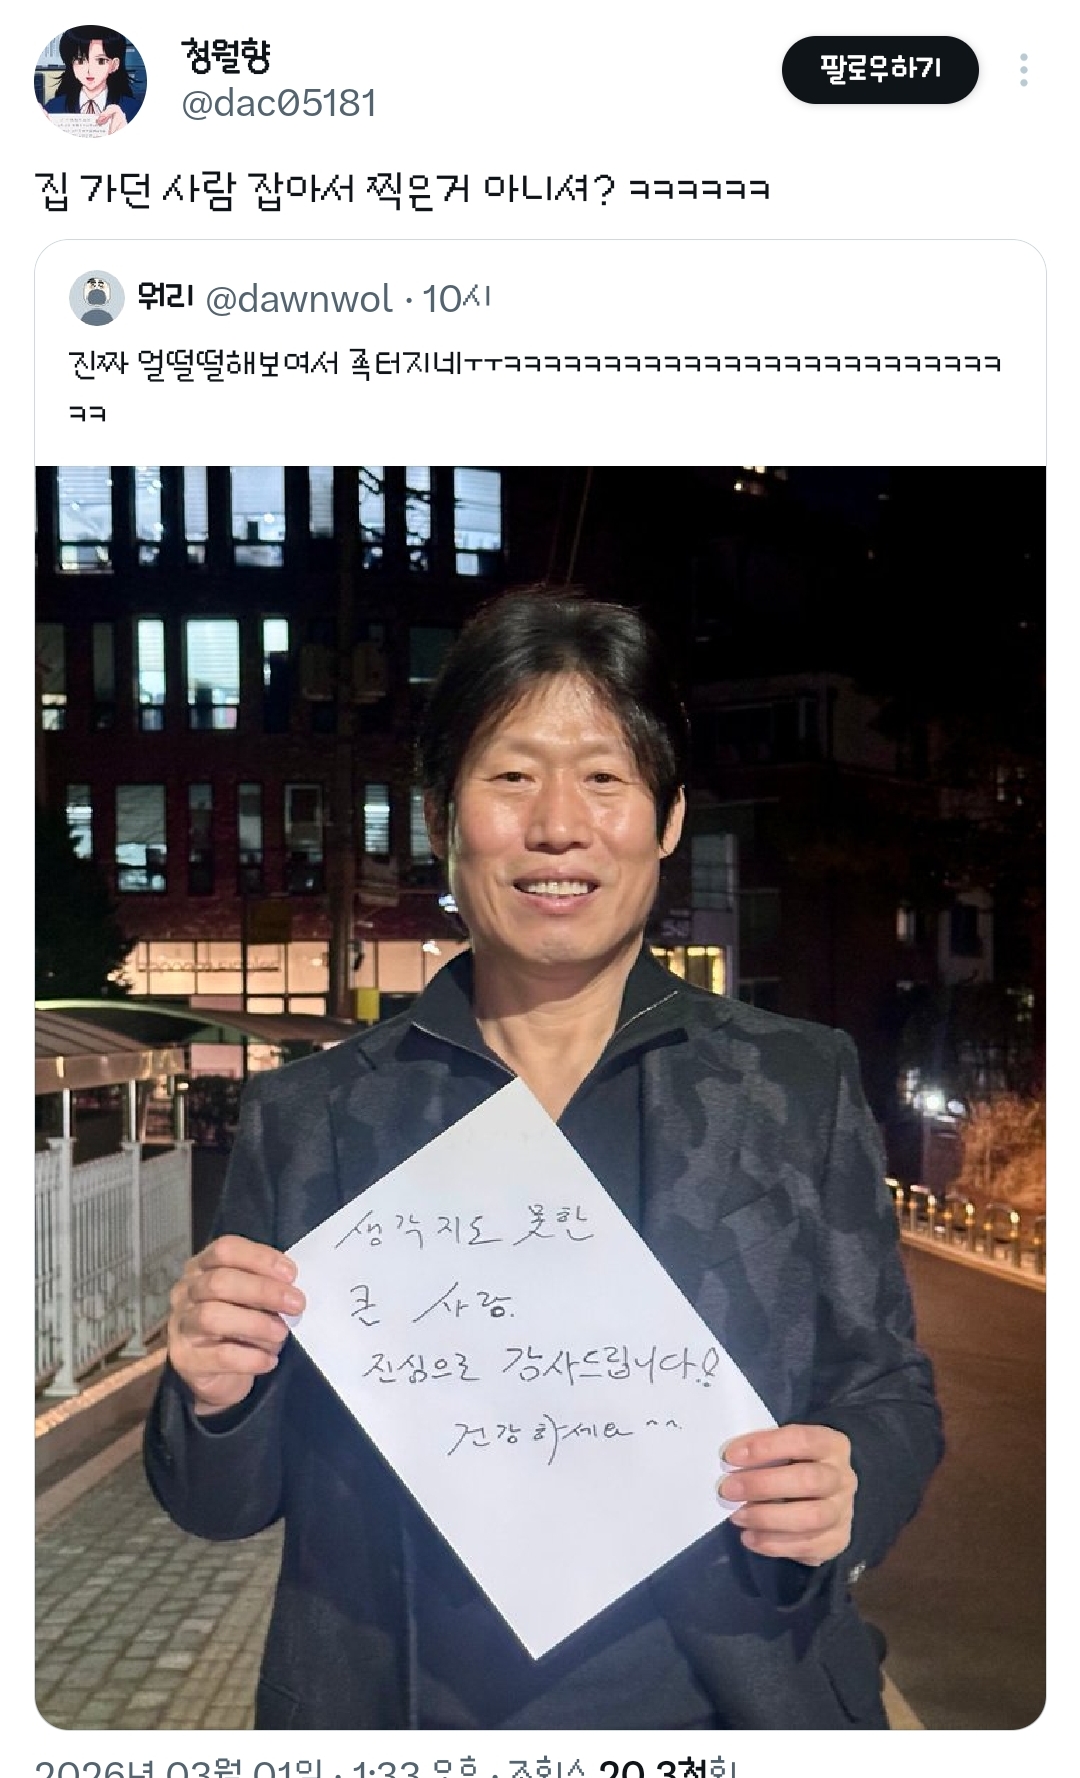 청월향
@dac05181
팔로우하기
집 가던 사람 잡아서 찍은거 아니셔? ㅋㅋㅋㅋㅋㅋ
뭐리 @dawnwol · 10시
진짜 얼떨떨해보여서 족터지네ㅜㅜㅋㅋㅋㅋㅋㅋㅋㅋㅋㅋㅋㅋㅋㅋㅋㅋㅋㅋㅋㅋㅋㅋㅋㅋㅋ
ㅋㅋ
생각지도 못한
큰 사랑.
진심으로 감사드립니다!
건강하세요^^
2026년 03월 01일 · 1:33 오후 · 조회수 20.3천회